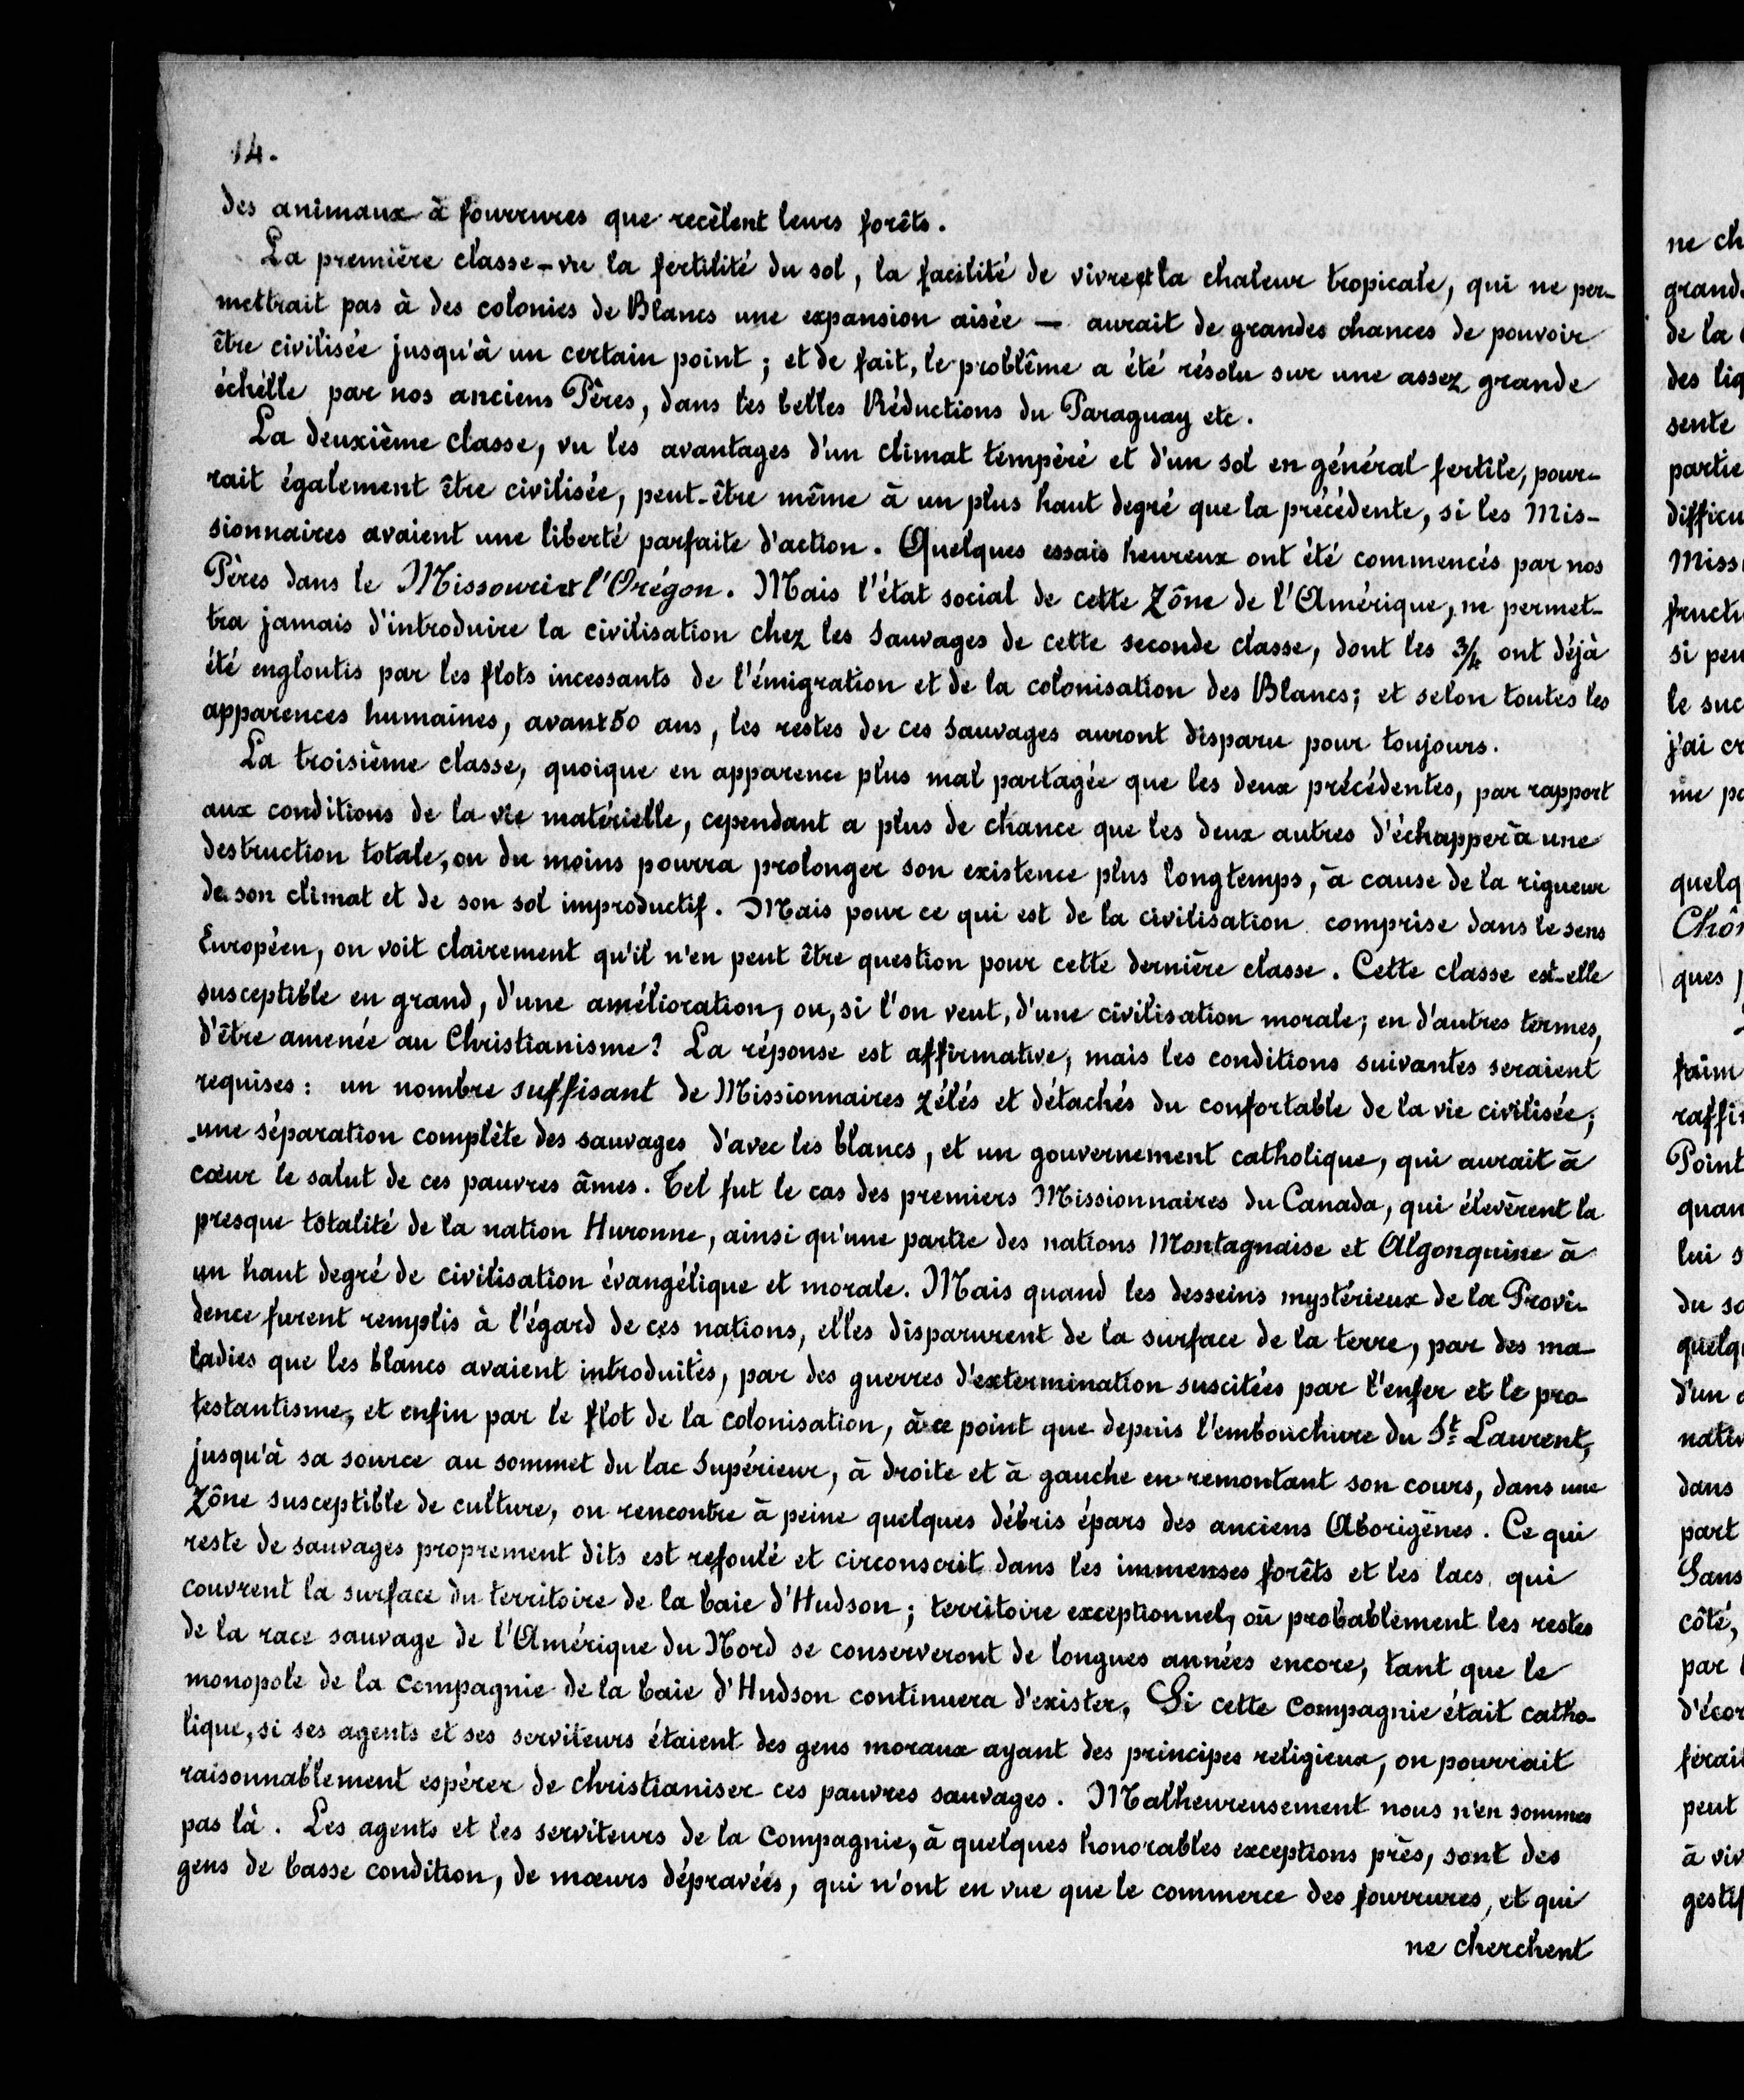 14.
des animaux à fourrures que recèlent leurs forêts.
La première classe - vu la fertilité du sol, la facilité de vivre et la chaleur tropicale, qui ne per-
mettrait pas à des colonies de Blancs une expansion aisée - aurait de grandes chances de pouvoir
être civilisée jusqu'à un certain point ; et de fait, le problême a été résolu sur une assez grande
échelle par nos anciens Pères, dans les belles Réductions du Paraguay etc.
La deuxième classe, vu les avantages d'un climat tempéré et d'un sol en général fertile, pour-
rait également être civilisée, peut-être même à un plus haut degré que la précédente, si les Mis-
sionnaires avaient une liberté parfaite d'action. Quelques essais heureux ont été commencés par nos
Pères dans le Missouri et l'Orégon. Mais l'état social de cette Zône de l'Amérique, ne permet-
tra jamais d'introduire la civilisation chez les Sauvages de cette seconde classe, dont les 3/4 ont déjà
été engloutis par les flots incessants de l'émigration et de la colonisation des Blancs; et selon toutes les
apparences humaines, avant 50 ans, les restes de ces Sauvages auront disparu pour toujours.
La troisième classe, quoique en apparence plus mal partagée que les deux précédentes, par rapport
aux conditions de la vie matérielle, cependant a plus de chance que les deux autres d'échapper à une
destruction totale, ou du moins pourra prolonger son existence plus longtemps, à cause de la rigueur
de son climat et de son sol improductif. Mais pour ce qui est de la civilisation comprise dans le sens
Européen, on voit clairement qu'il n'en peut être question pour cette dernière classe. Cette classe est-elle
susceptible en grand, d'une amélioration, ou, si l'on veut, d'une civilisation morale; en d'autres termes,
d'être amenée au Christianisme? La réponse est affirmative; mais les conditions suivantes seraient
requises: un nombre suffisant de Missionnaires zélés et détachés du confortable de la vie civilisée;
une séparation complète des sauvages d'avec les blancs, et un gouvernement catholique, qui aurait à
cœur le salut de ces pauvres âmes. Tel fut le cas des premiers Missionnaires du Canada, qui élevèrent la
presque totalité de la nation Huronne, ainsi qu'une partie des nations Montagnaise et Algonquine à
un haut degré de civilisation évangélique et morale. Mais quand les desseins mystérieux de la Provi-
dence furent remplis à l'égard de ces nations, elles disparurent de la surface de la terre, par des ma-
ladies que les blancs avaient introduites, par des guerres d'extermination suscitées par l'enfer et le pro-
testantisme, et enfin par le flot de la colonisation, à ce point que depuis l'embouchure du St Laurent,
jusqu'à sa source au sommet du lac Supérieur, à droite et à gauche en remontant son cours, dans une
Zône susceptible de culture, on rencontre à peine quelques débris épars des anciens Aborigènes. Ce qui
reste de sauvages proprement dits est refoulé et circonscrit dans les immenses forêts et les lacs qui
couvrent la surface du territoire de la baie d'Hudson ; territoire exceptionnel, où probablement les restes
de la race sauvage de l'Amérique du Nord se conserveront de longues années encore, tant que le
monopole de la Compagnie de la baie d'Hudson continuera d'exister. Si cette Compagnie était catho-
lique, si ses agents et ses serviteurs étaient des gens moraux ayant des principes religieux, on pourrait
raisonnablement espérer de christianiser ces pauvres sauvages. Malheureusement nous n'en sommes
pas là. Les agents et les serviteurs de la Compagnie, à quelques honorables exceptions près, sont des
gens de basse condition, de mœurs dépravées, qui n'ont en vue que le commerce des fourrures, et qui
ne cherchent
ne ch
grand
de la
des liq
sente
partie
difficu
Miss
fructi
si peu
le suc
j'ai cr
me pa
quelq
Chôn
ques
faim
raffin
Point
quan
lui s
du so
quelq
d'un
nativ
dans
part
Sans
côté,
par
d'écor
ferait
peut
à viv
gestif